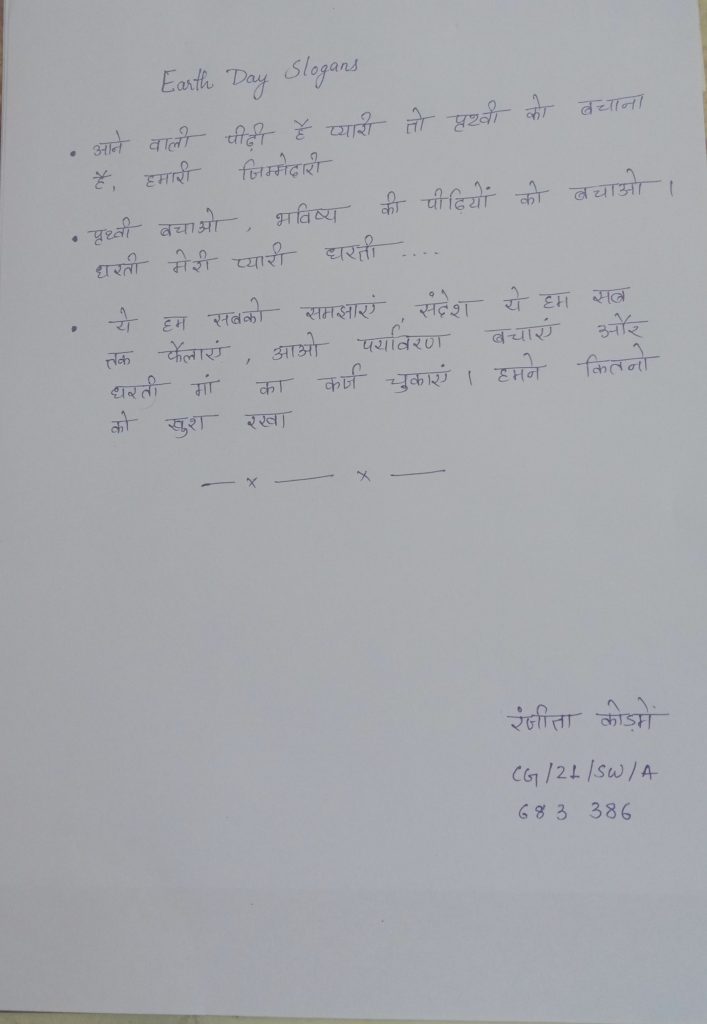 Earth Day Slogans
• आने वाली पीढ़ी है प्यारी तो पृथ्वी को बचाना
है, हमारी जिम्मेदारी
• पृथ्वी बचाओ, भविष्य की पीढियों को बचाओ।
धरती मेरी प्यारी धरती ....
• ये हम सबको समझाएं, संदेश ये हम सब
तक फैलाएं, आओ पर्यावरण बचाएं और
धरती मां का कर्ज चुकाएं। हमने कितनो
को खुश रखा
— x — x —
रंजीता कोड़में
CG/21/SW/A
683 386